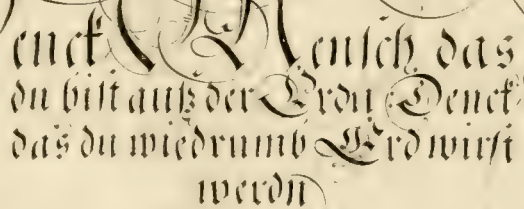 enck Mensch das
du bist auß der Erdn Denck
das du wiedrumb Erd wirst
werdn